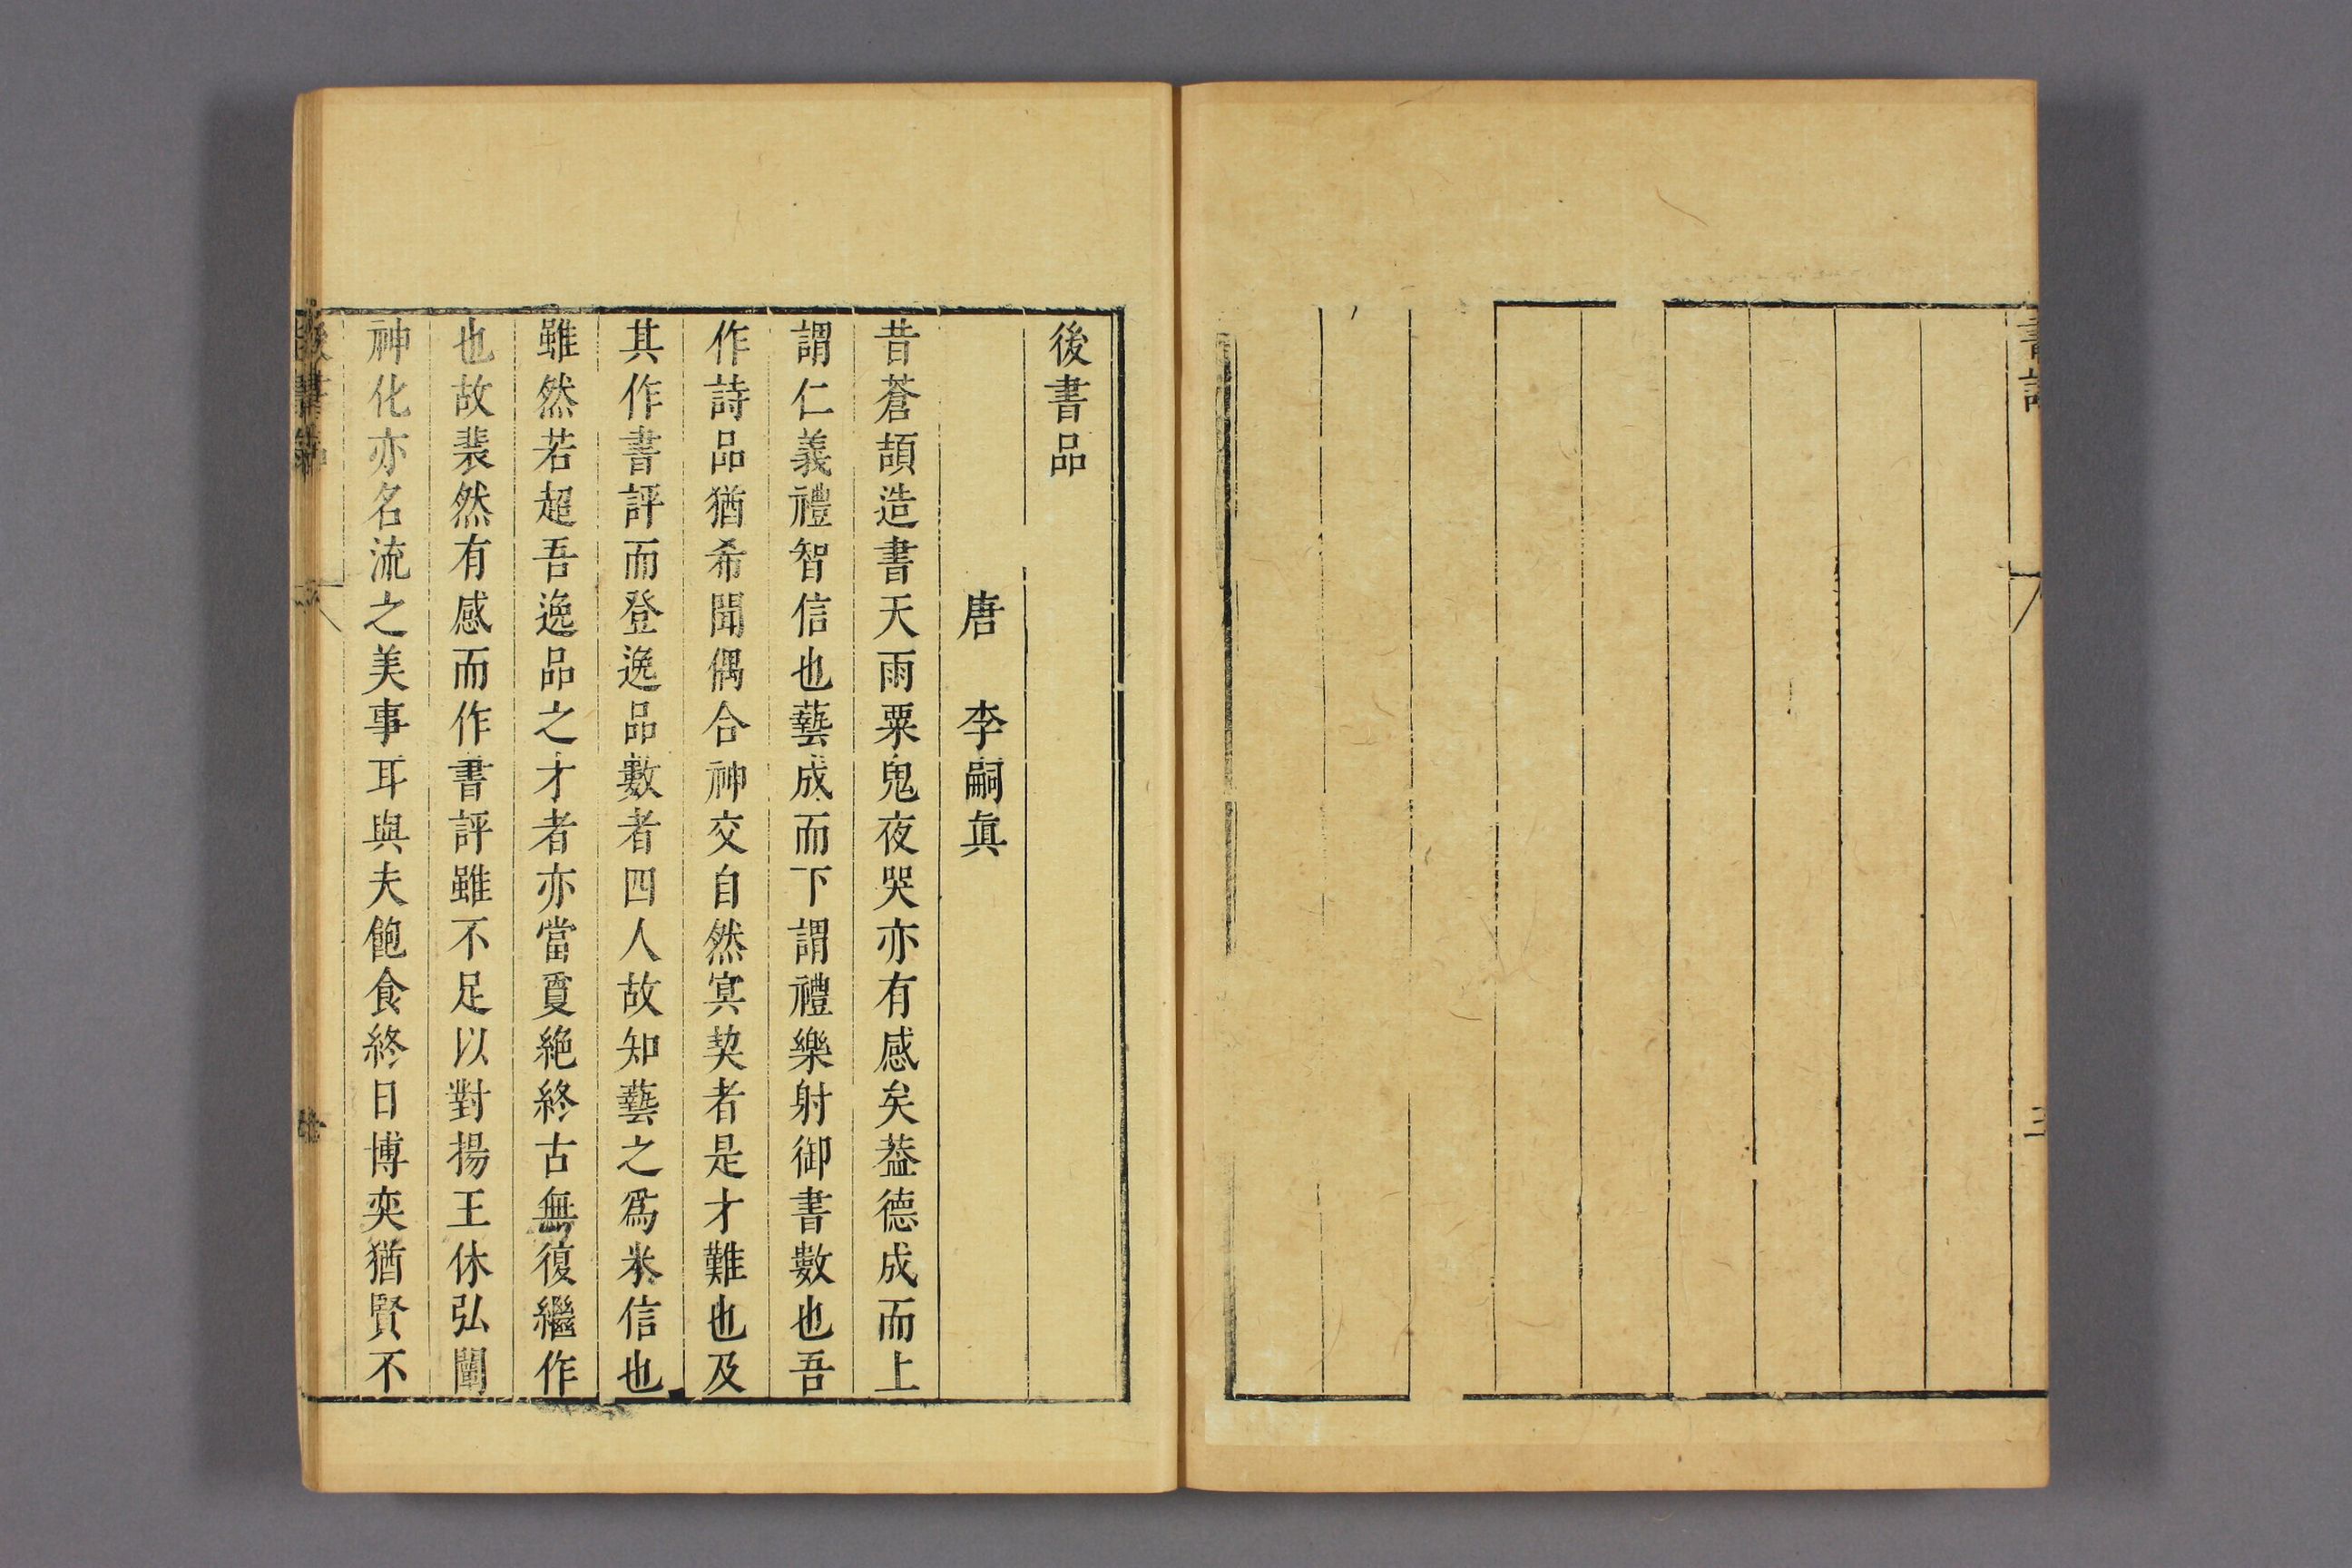 後書品
唐　李嗣眞
昔蒼頡造書天雨粟鬼夜哭亦有感矣葢德成而上
謂仁義禮智信也藝成而下謂禮樂射御書數也吾
作詩品猶希聞偶合神交自然冥契者是才難也及
其作書評而登逸品數者四人故知藝之爲末信也
雖然若超吾逸品之才者亦當敻絶終古無復繼作
也故裴然有感而作書評雖不足以對揚王休弘闡
神化亦名流之美事耳與夫飽食終日博奕猶賢不